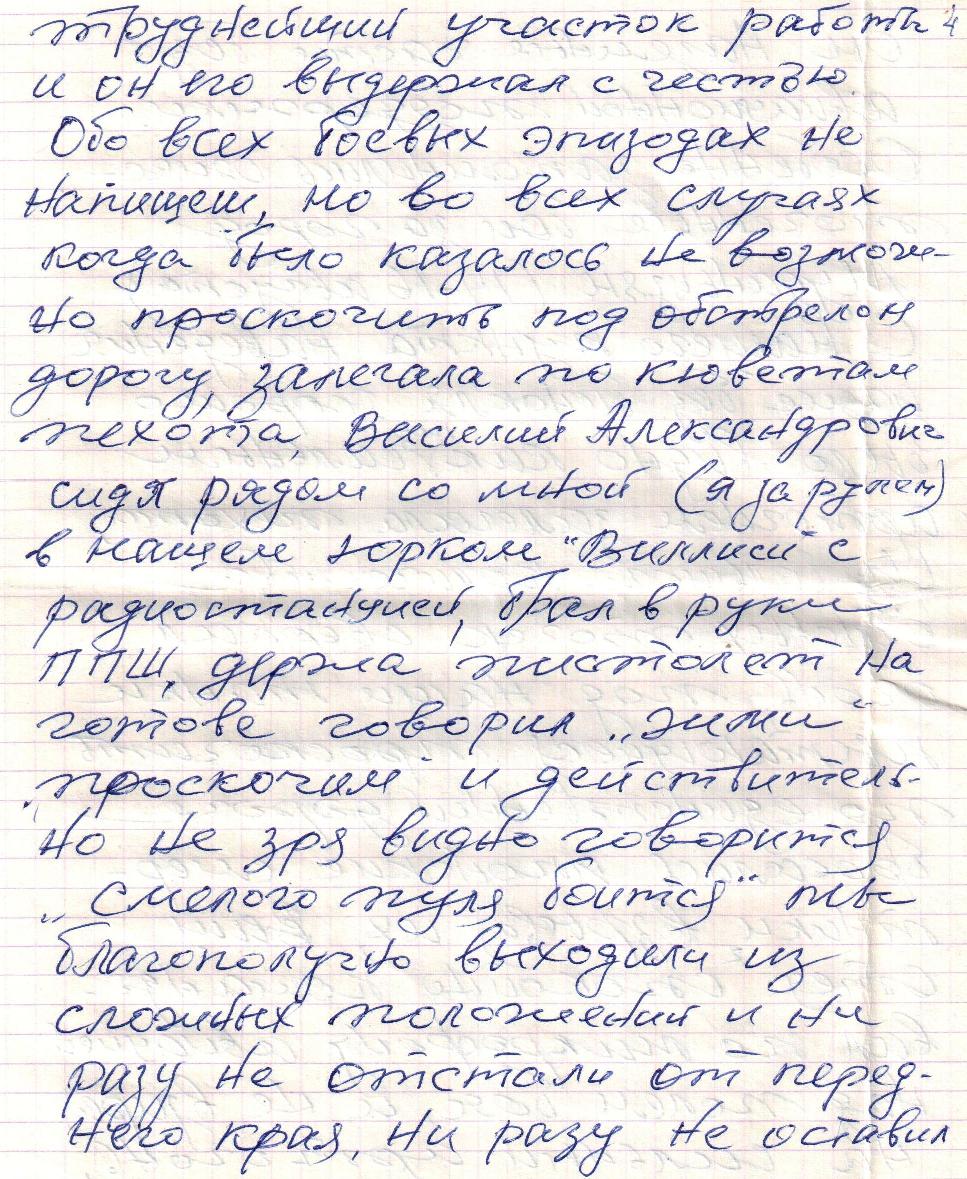 труднейший участок работы 4
и он его выдержал с честью.
Обо всех боевых эпизодах не
напишеш, но во всех случаях
когда было казалось не возмож-
но проскочить под обстрелом
дорогу, залегала по кюветам
пехота, Василий Александрович
сидя рядом со мной (я за рулем)
в нашем юрком "Виллисе" с
радиостанцией, брал в руки
ППШ, держа пистолет на
готове говорил „жми"
„проскочим" и действитель-
но не зря видно говорится
„смелого пуля боится" мы
благополучно выходили из
сложных положений и ни
разу не отстали от перед-
него края, ни разу не оставил